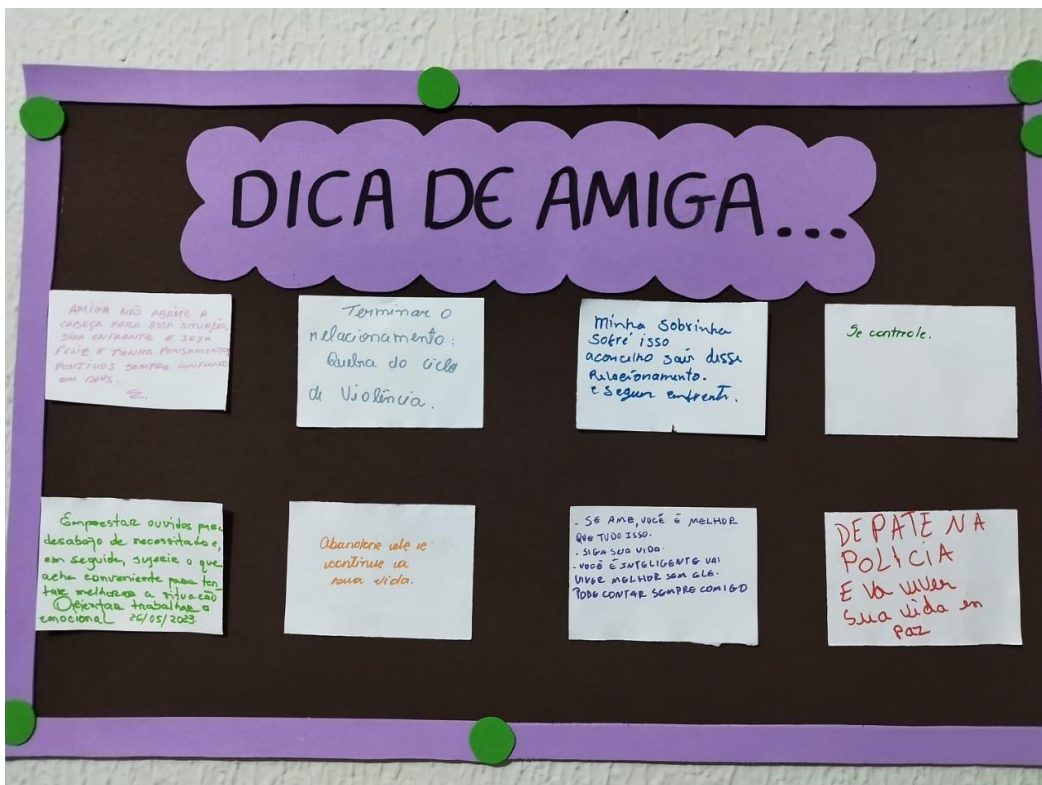 DICA DE AMIGA...
AMIGA NÃO ABAIXE A
CABEÇA PARA ESSA SITUAÇÃO,
SIGA ENFRENTE E SEJA
FELIZ E TENHA PENSAMENTOS
POSITIVOS SEMPRE
EM DEUS.
Terminar o
relacionamento:
Quebra do ciclo
de Violência.
Minha Sobrinha
Sofre isso
aconselho sair desse
Relacionamento.
e Seguir enfrente.
Se controle.
Emprestar ouvidos para
desabafo de necessitado e,
em seguida, sugerir o que
acha conveniente para ten
tar melhorar a situação
Orientar trabalhar o
emocional 26/05/2023.
Abandone ele e
continue a
sua vida.
- SE AME, VOCÊ É MELHOR
QUE TUDO ISSO.
- SIGA SUA VIDA.
- VOCÊ É INTELIGENTE VAI
VIVER MELHOR SEM ELE.
PODE CONTAR SEMPRE COMIGO
DE PATE NA
POLÍCIA
E Va viver
Sua vida em
Paz